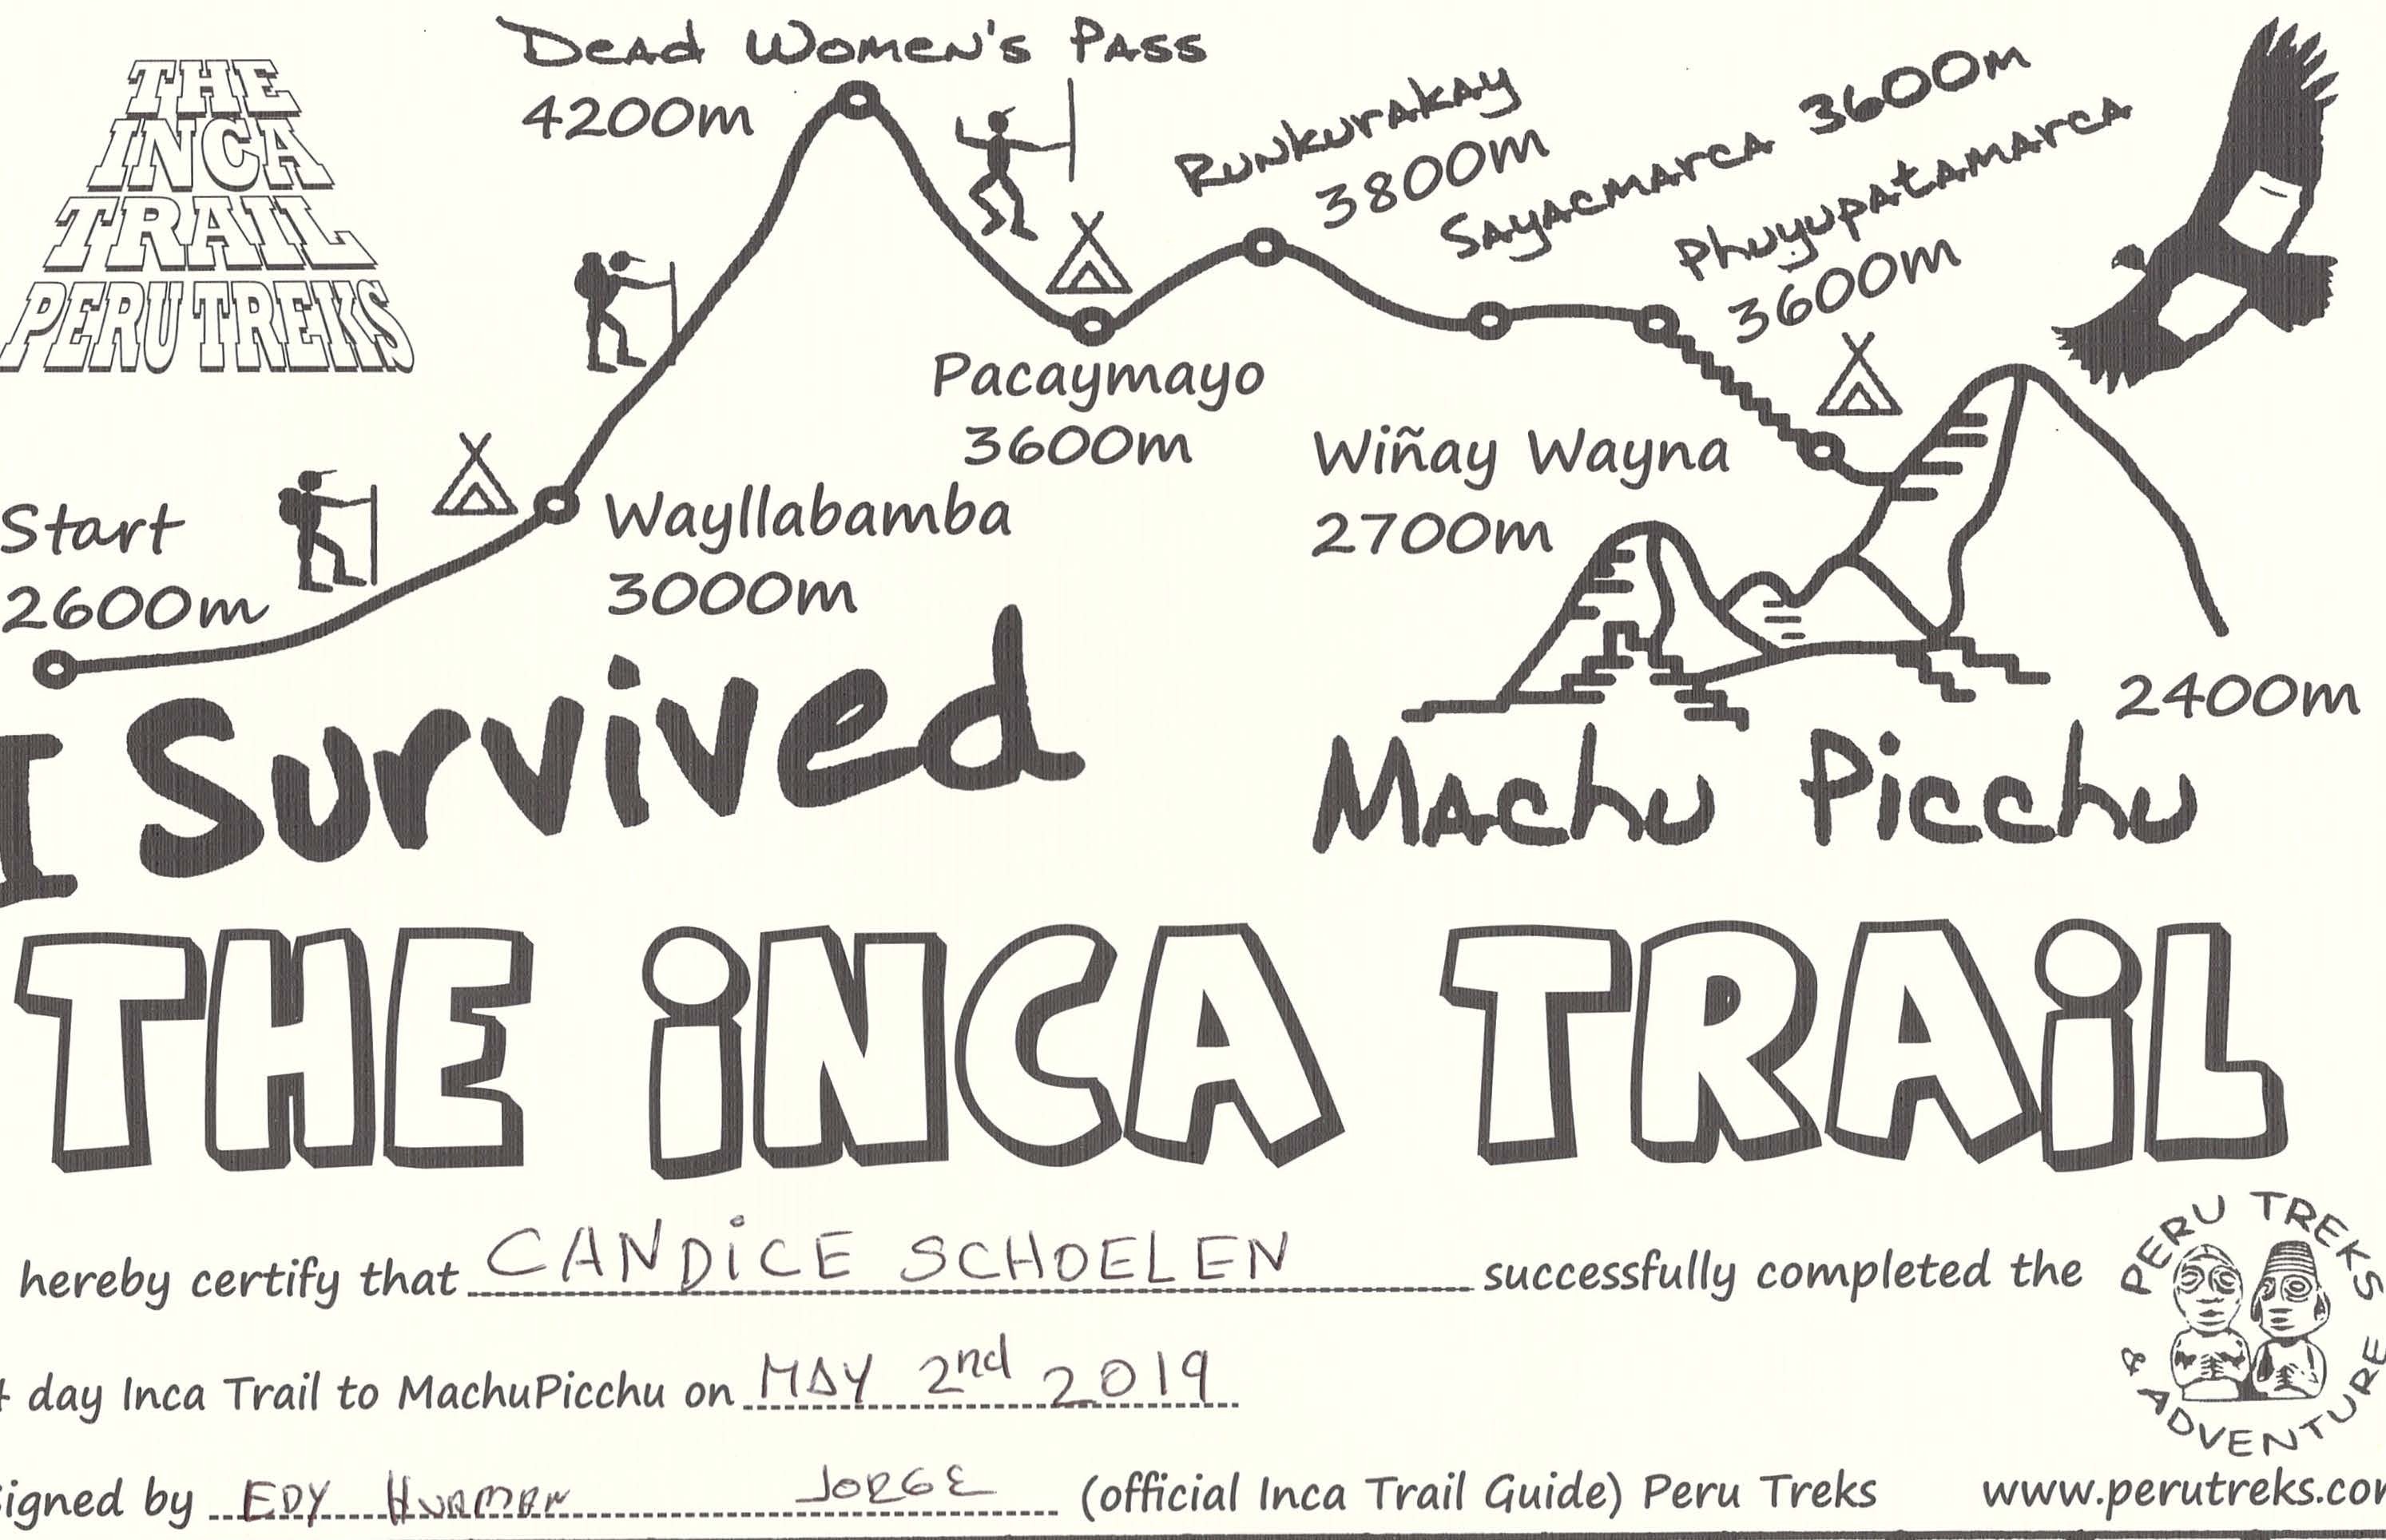 THE
INCA
TRAIL
PERU TREKS
Dead Women's Pass
4200m
Runkurakay
3800m
Sayacmarca 3600m
Phuyupatamarca
3600m
Pacaymayo
3600m
Wiñay Wayna
2700m
Start
2600m
Wayllabamba
3000m
2400m
Machu Picchu
I Survived
THE iNCA TRAiL
hereby certify that CANDiCE SCHOELEN successfully completed the
day Inca Trail to MachuPicchu on MAY 2nd 2019
igned by EDY HUAMAN JORGE (official Inca Trail Guide) Peru Treks www.perutreks.co
PERU TREKS
& ADVENTURE